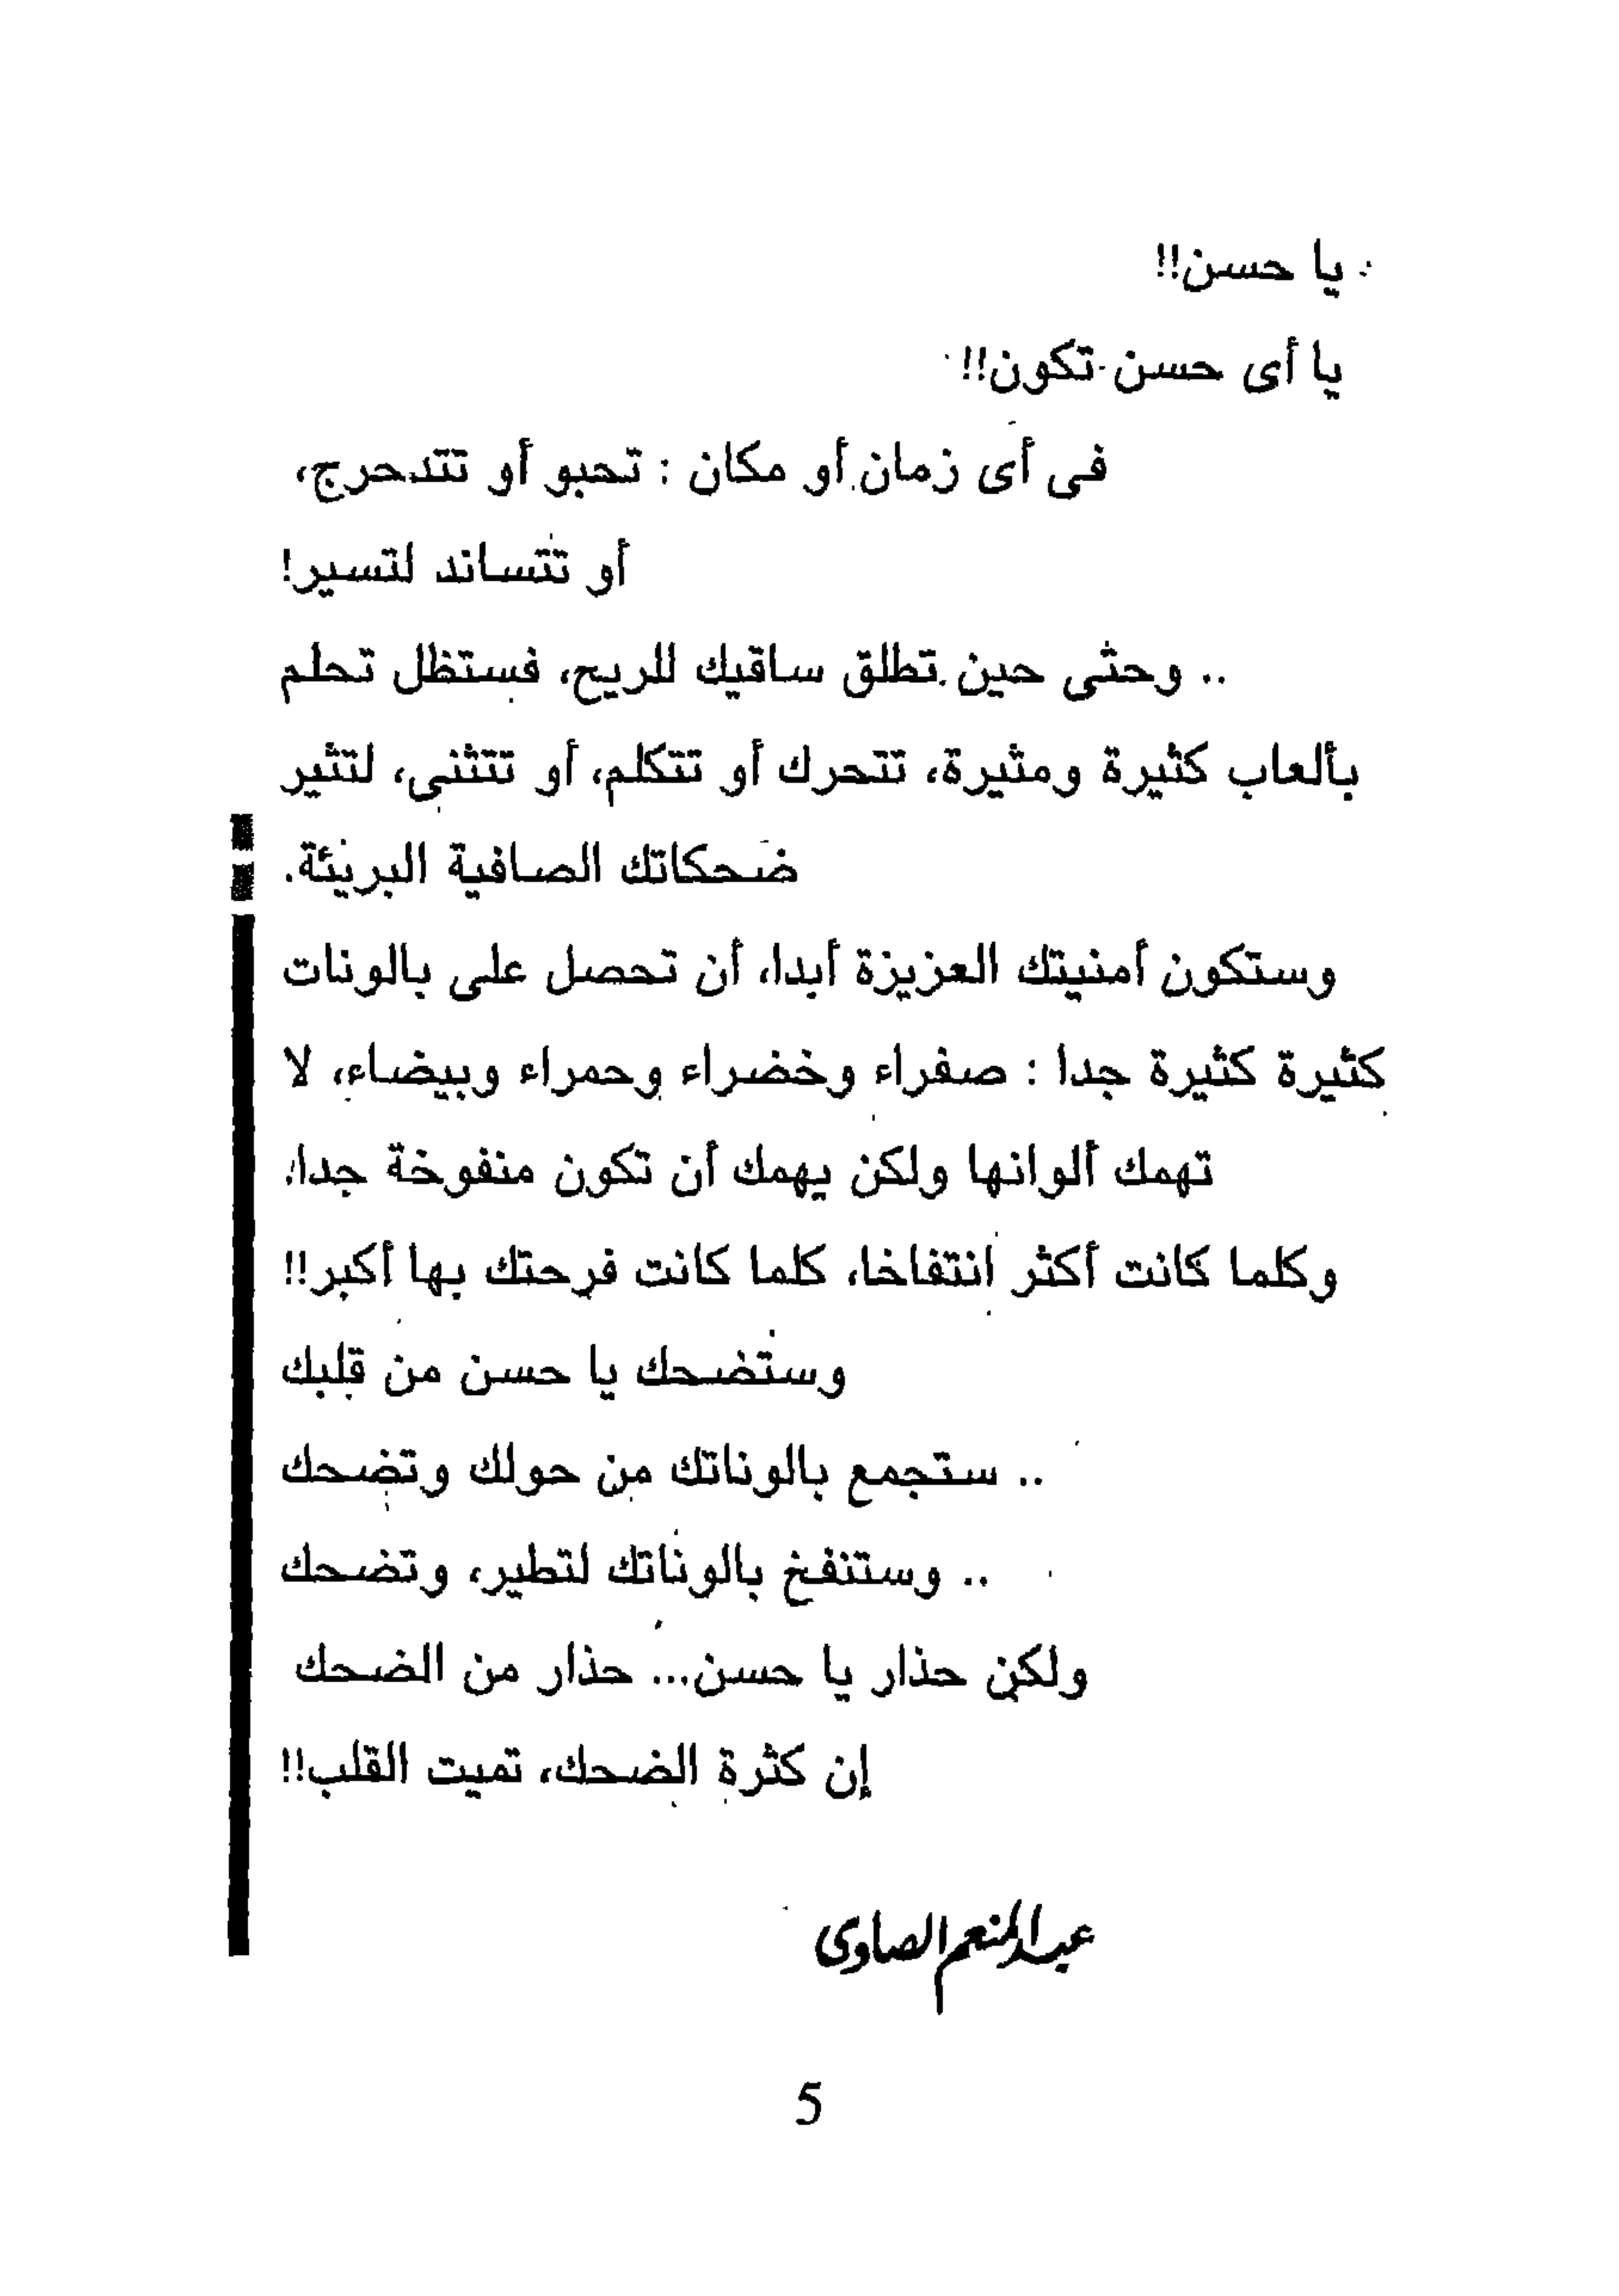 يا حسن!!
يا أى حسن تكون!!
فى أى زمان أو مكان : تحبو أو تتدحرج،
أو تتساند لتسير!
.. وحتى حين تطلق ساقيك للريح، فستظل تحلم
بألعاب كثيرة ومثيرة، تتحرك أو تتكلم، أو تتثنى، لتثير
ضحكاتك الصافية البريئة.
وستكون أمنيتك العزيزة أبدا، أن تحصل على بالونات
كثيرة كثيرة جدا : صفراء وخضراء وحمراء وبيضاء، لا
تهمك ألوانها ولكن يهمك أن تكون منفوخة جدا،
وكلما كانت أكثر انتفاخا، كلما كانت فرحتك بها أكبر!!
وستضحك يا حسن من قلبك
.. ستجمع بالوناتك من حولك وتضحك
.. وستنفخ بالوناتك لتطير، وتضحك
ولكن حذار يا حسن... حذار من الضحك
إن كثرة الضحك، تميت القلب!!
عبد المنعم الصاوى
5